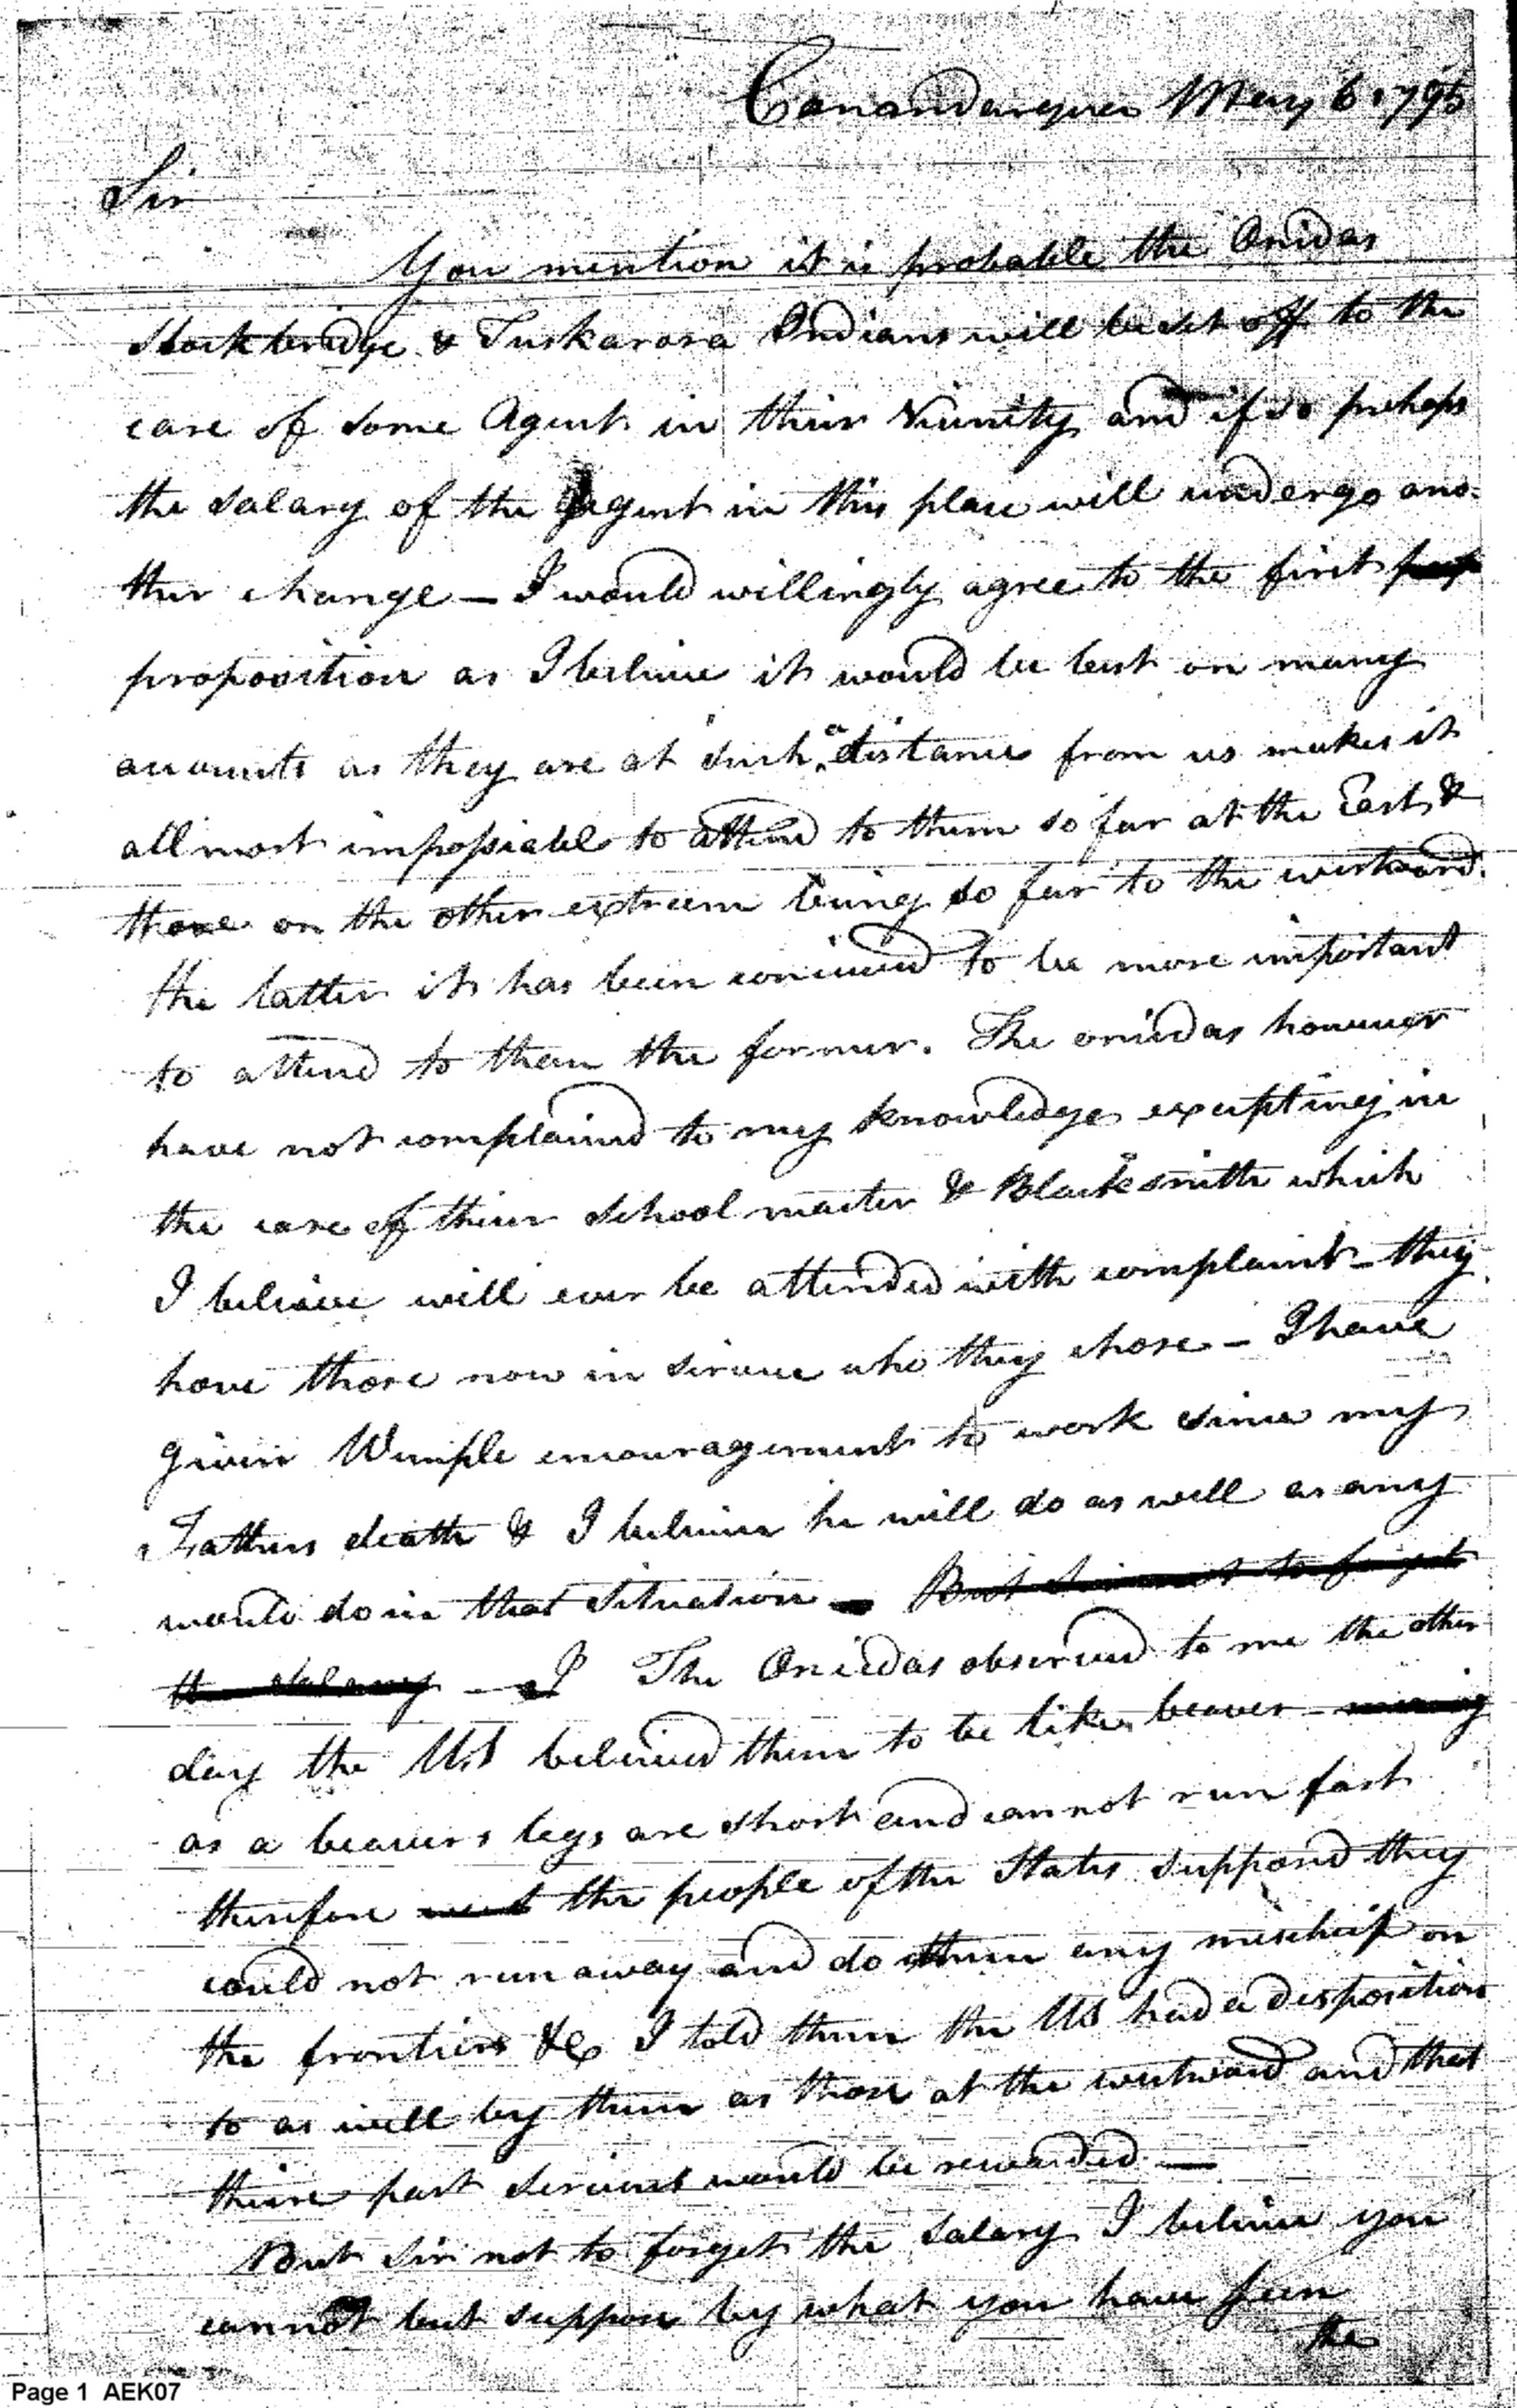 Canandarguea May 6. 1795
Sir
You mention it is probable the Onidas
Stockbridge & Tuskarora Indians will be set off to the
care of some Agent in their Vicinity and if so perhaps
the salary of the Agent in this place will undergo ano-
ther change — I would willingly agree to the first
proposition as I believe it would be best on many
accounts as they are at such a distance from us makes it
allmost impossiable to attend to them so far at the East &
those on the other extreem being so far to the westward.
the latter it has been conceived to be more important
to attend to than the former. The oniedas however
have not complained to my knowledge excepting in
the case of their school master & Blacksmith which
I believe will ever be attended with complaint - they
have those now in service who they chose - I have
given Wimple encouragement to work since my
Fathers death & I believe he will do as well as any
would do in that situation — But sir not to forget
the salary — I The Oniedas observed to me the other
day the U.S believed them to be like beaver - meaning
as a beavers legs are short and cannot run fast
therefore the people of the States supposed they
could not run away and do them any mischeif on
the frontiers &c I told them the US had a disposition
to as well by them as those at the westward and that
theire past services would be rewarded —
But sir not to forget the salary I believe you
cannot but suppose by what you have seen
the
Page 1 AEK07